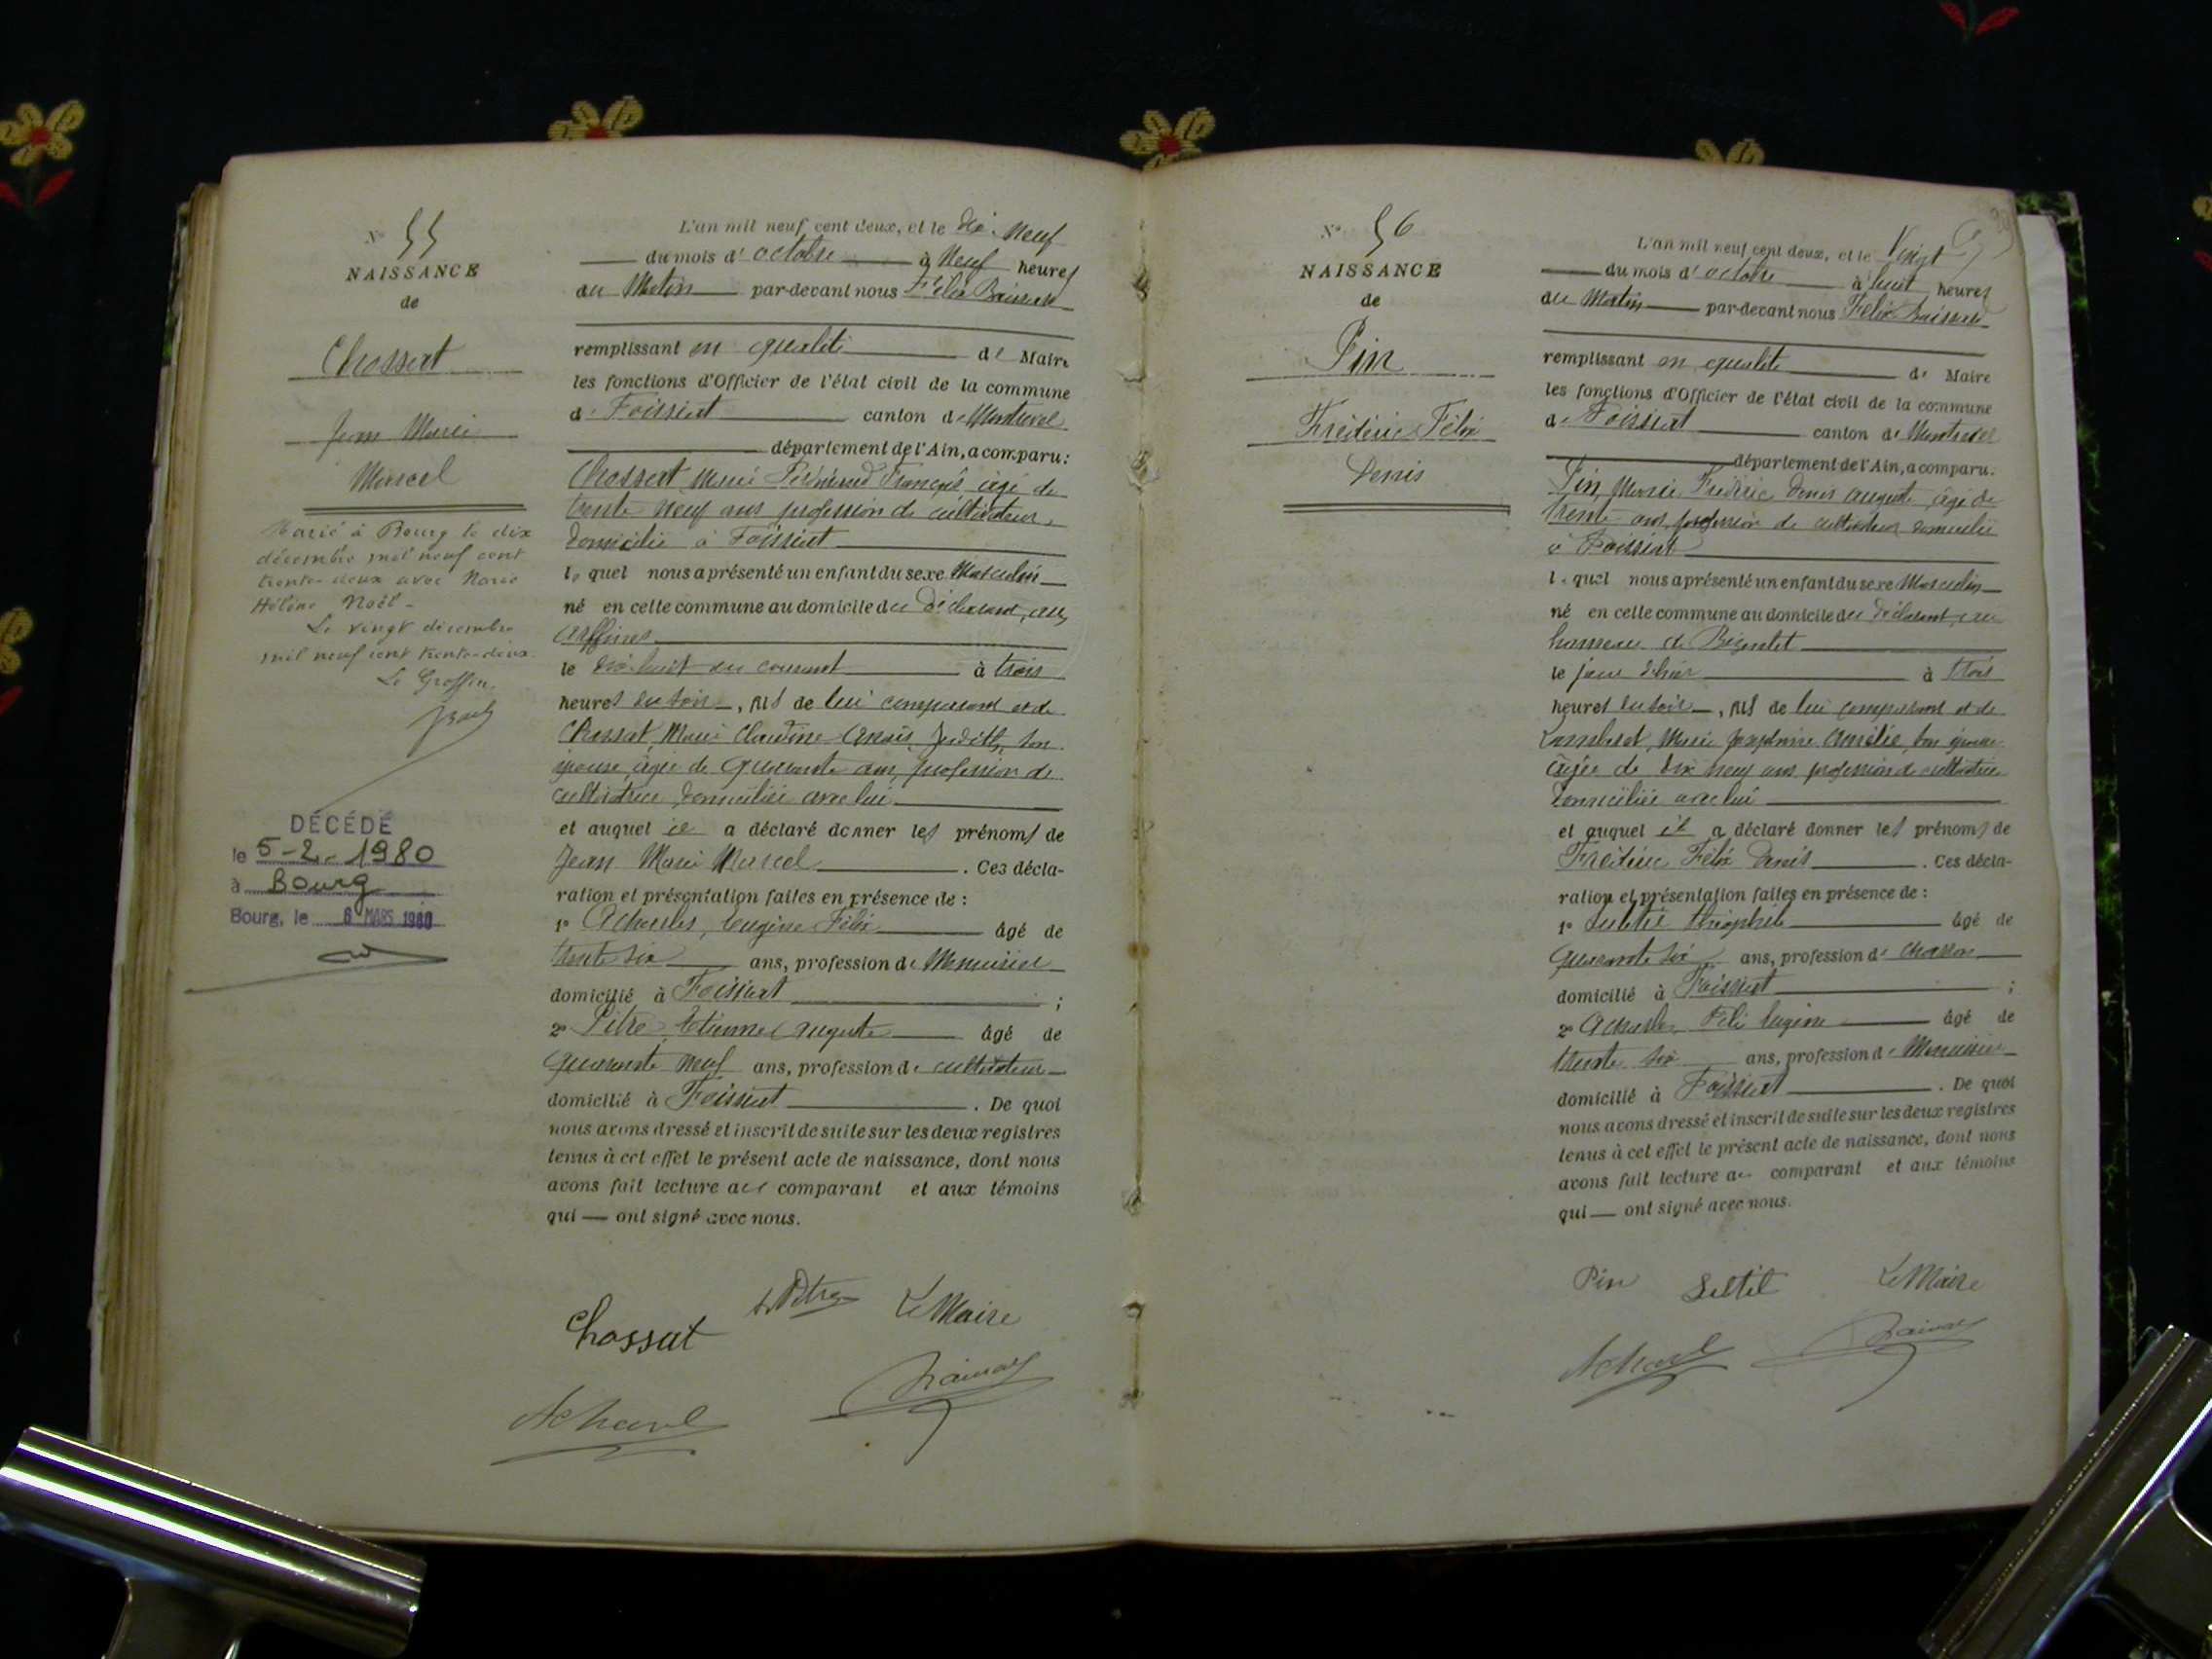 N° 55
NAISSANCE
de
Chossat
Jean Marie
Marcel
Marié à Bourg le dix
décembre mil neuf cent
trente-deux avec Marie
Hélène Noël.
Le vingt décembre
mil neuf cent trente-deux
Le Greffier,
DÉCÉDÉ
le 5-2-1980
à Bourg
Bourg, le 6 MARS 1980
L'an mil neuf cent deux, et le dix-neuf
du mois d'octobre à neuf heures
du Matin par-devant nous Félix
remplissant en qualité de Maire
les fonctions d'Officier de l'état civil de la commune
de Foissiat canton de Montrevel
département de l'Ain, a comparu:
Chossat Marie François âgé de
trente neuf ans profession de cultivateur,
domicilié à Foissiat
lequel nous a présenté un enfant du sexe Masculin
né en cette commune au domicile du déclarant, aux
le dix huit du courant à trois
heures du soir, fils de lui comparant et de
Chossat, Marie Claudine Anaïs, Judith, son
épouse, âgée de quarante ans, profession de
cultivatrice, domiciliée avec lui
et auquel il a déclaré donner les prénoms de
Jean Marie Marcel. Ces décla-
ration et présentation faites en présence de :
1° Acharles, Eugène Félix âgé de
trente six ans, profession de Menuisier
domicilié à Foissiat ;
2° Pitre, Etienne Auguste âgé de
quarante neuf ans, profession de cultivateur
domicilié à Foissiat. De quoi
nous avons dressé et inscrit de suite sur les deux registres
tenus à cet effet le présent acte de naissance, dont nous
avons fait lecture au comparant et aux témoins
qui — ont signé avec nous.
Chossat Pitre Le Maire
N° 56
NAISSANCE
de
Pin
Frédéric Félix
Denis
L'an mil neuf cent deux, et le Vingt
du mois d'octobre à huit heures
du Matin par-devant nous Félix
remplissant en qualité de Maire
les fonctions d'Officier de l'état civil de la commune
de Foissiat canton de Montrevel
département de l'Ain, a comparu.
Pin, Marie Frédéric Denis Auguste âgé de
trente ans, profession de cultivateur domicilié
à Foissiat
lequel nous a présenté un enfant du sexe Masculin
né en cette commune au domicile du déclarant, au
hameau de
le jour d'hier à trois
heures du soir, fils de lui comparant et de
Lambert, Marie Joséphine Amélie, son épouse
âgée de dix neuf ans profession de cultivatrice
domiciliée avec lui
et auquel il a déclaré donner les prénoms de
Frédéric Félix Denis. Ces décla-
ration et présentation faites en présence de :
1° théophile âgé de
quarante six ans, profession de
domicilié à Foissiat ;
2° Acharles Félix Eugène âgé de
trente six ans, profession de Menuisier
domicilié à Foissiat. De quoi
nous avons dressé et inscrit de suite sur les deux registres
tenus à cet effet le présent acte de naissance, dont nous
avons fait lecture au comparant et aux témoins
qui — ont signé avec nous.
Pin Le Maire